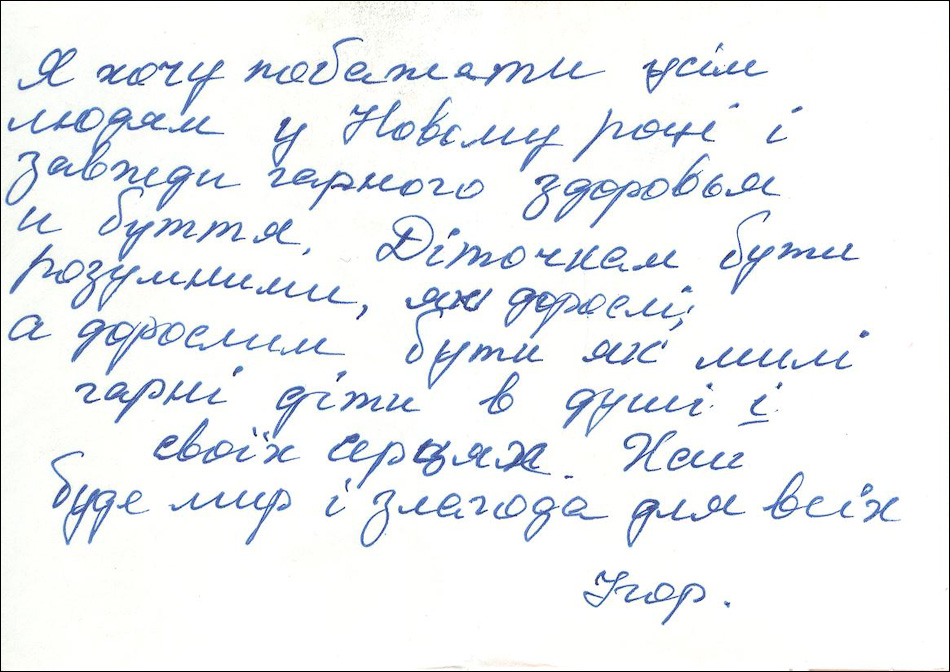 Я хочу побажати усім
людям у Новому році і
завжди гарного здоровья
и буття. Діточкам бути
розумними, як дорослі;
а дорослим бути як милі
гарні діти в душі і
своїх серцях. Хай
буде мир і злагода для всіх
Ігор.